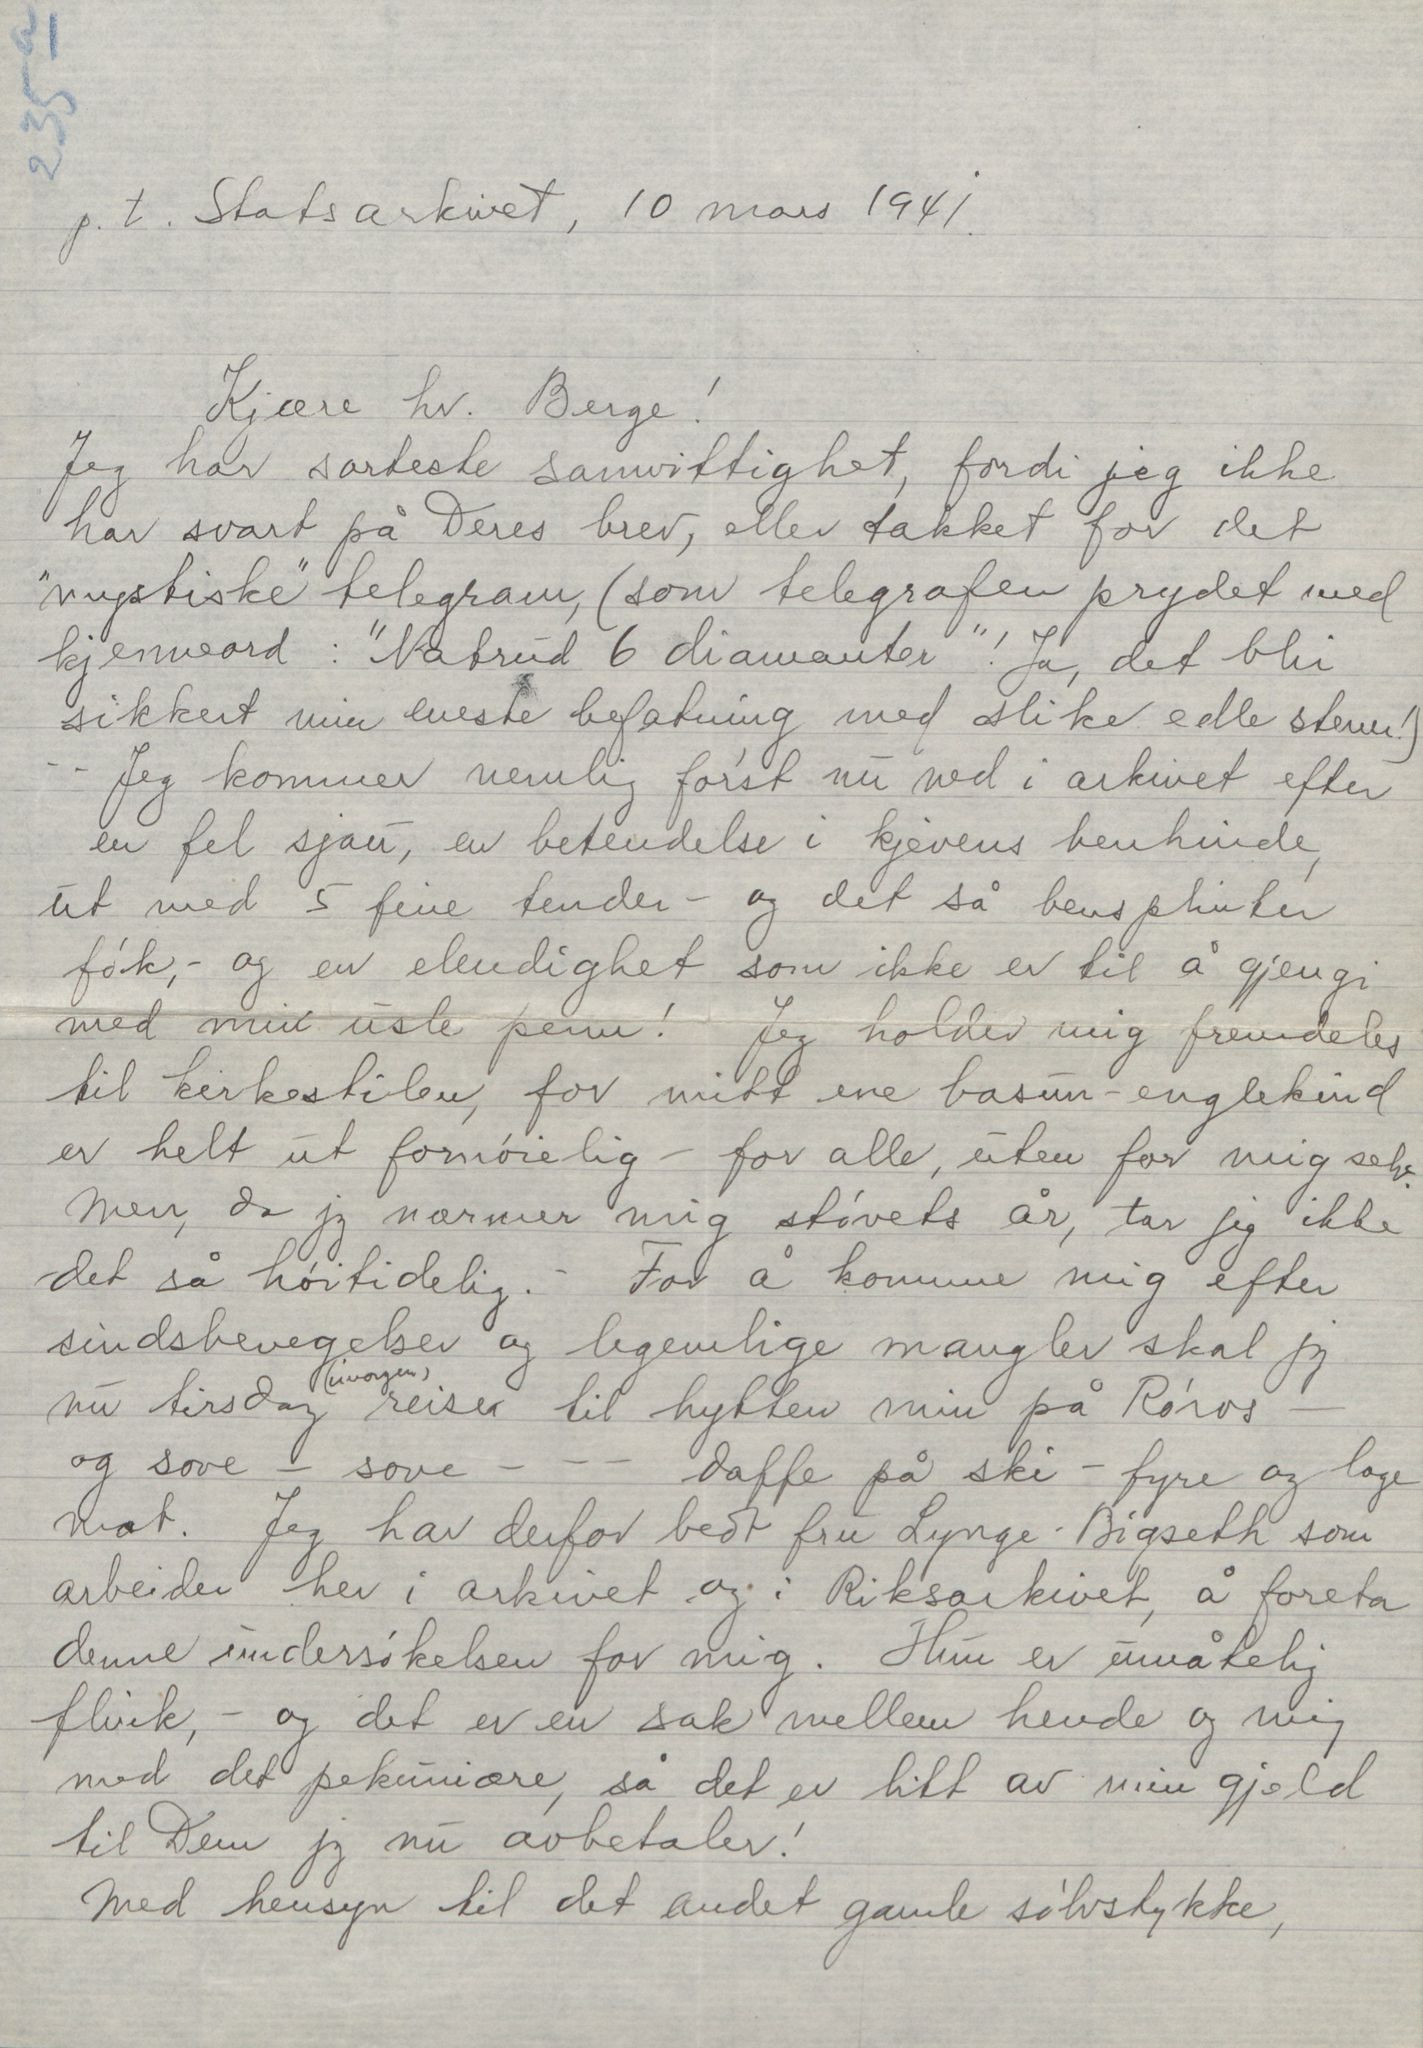 235 a
p. t. Statsarkivet, 10 mars 1941.
Kjære hr. Berge!
Jeg har sorteste samvittighet, fordi jeg ikke
har svart på Deres brev, eller takket for det
"mystiske" telegram, (som telegrafen prydet med
kjenneord: "Natrud 6 diamanter"! Ja, det blir
sikkert min eneste befatning med slike edle stener!)
-- Jeg kommer nemlig først nu ned i arkivet efter
en fel sjau, en betendelse i kjevens benhinde,
ut med 5 fine tender - og det så bensplinter
føk, - og en elendighet som ikke er til å gjengi
med min usle penn! Jeg holder mig fremdeles
til kirkestilen, for mitt ene basun-englekind
er helt ut fornøielig - for alle, uten for mig selv.
Men, da jeg nærmer mig støvets år, tar jeg ikke
det så høitidelig. - For å komme mig efter
sindsbevegelser og legemlige mangler skal jeg
nu tirsdag (imorgen) reise til hytten min på Røros -
og sove - sove - - - daffe på ski - fyre og lage
mat. Jeg har derfor bedt fru Lynge-Bigseth som
arbeider her i arkivet og i Riksarkivet, å foreta
denne undersøkelsen for mig. Hun er umåtelig
flink, - og det er en sak mellem hende og mig
med det pekuniære, så det er litt av min gjeld
til Dem jeg nu avbetaler!
Med hensyn til det andet gamle sølvstykke,